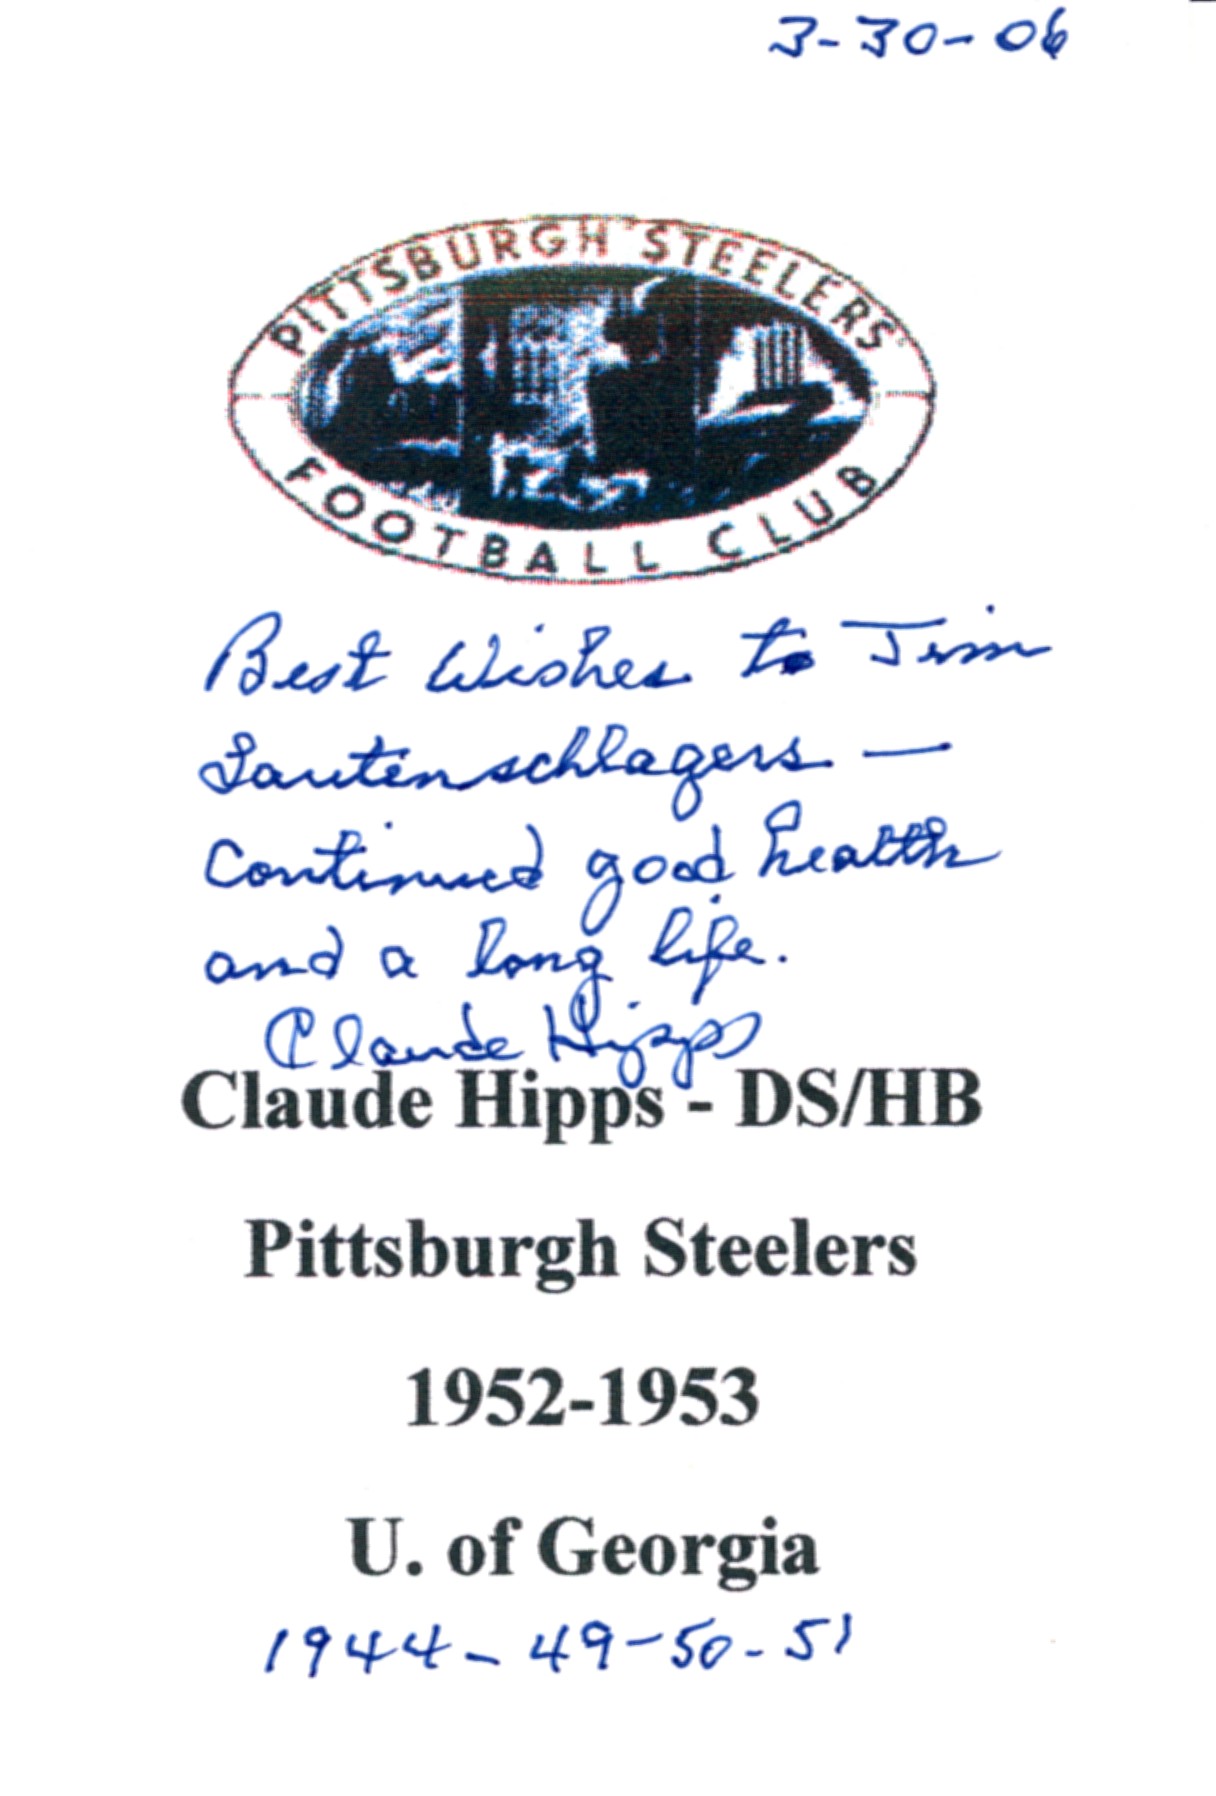 3-30-06
PITTSBURGH STEELERS
FOOTBALL CLUB
Best Wishes to Jim
Lautenschlagers —
Continued good health
and a long life.
Claude Hipps
Claude Hipps - DS/HB
Pittsburgh Steelers
1952-1953
U. of Georgia
1944-49-50-51